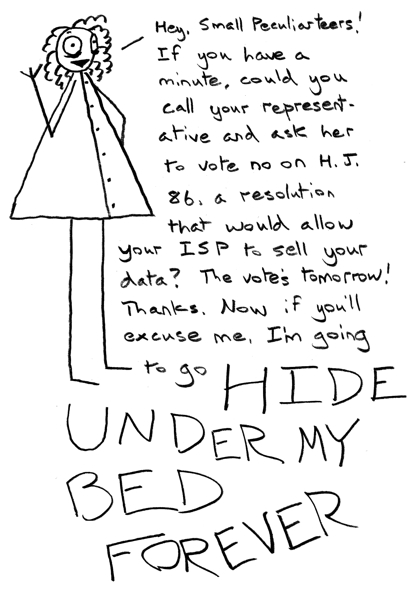 Hey, Small Peculiarteers!
If you have a
minute, could you
call your represent-
ative and ask her
to vote no on H.J.
86, a resolution
that would allow
your ISP to sell your
data? The vote's tomorrow!
Thanks. Now if you'll
excuse me, I'm going
to go HIDE
UNDER MY
BED
FOREVER